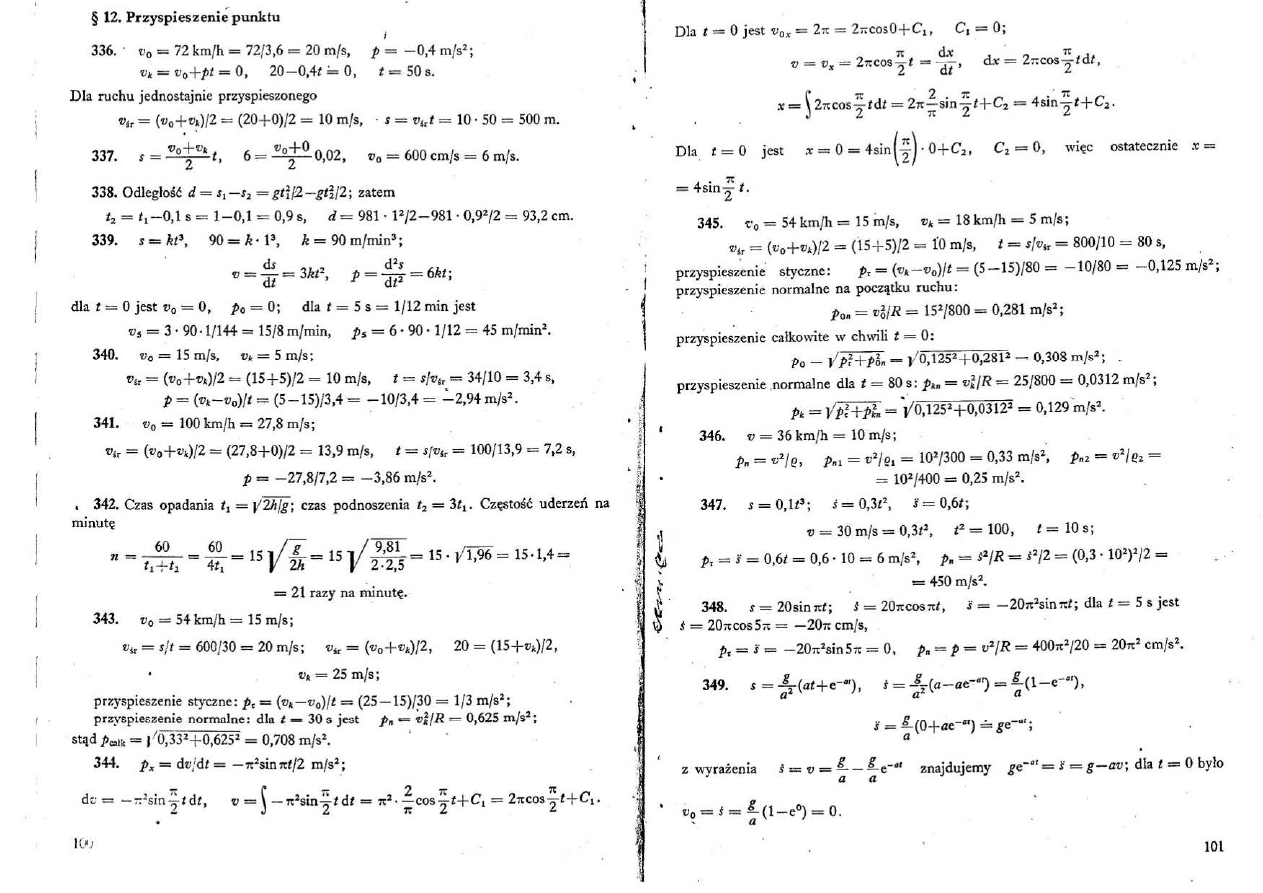 § 12. Przyspieszenie punktu
336. v₀ = 72 km/h = 72/3,6 = 20 m/s, p = −0,4 m/s²;
vₖ = v₀+pt = 0, 20−0,4t = 0, t = 50 s.
Dla ruchu jednostajnie przyspieszonego
vśr = (v₀+vₖ)/2 = (20+0)/2 = 10 m/s, s = vśr t = 10 · 50 = 500 m.
337. s = (v₀+vₖ)/2 t, 6 = (v₀+0)/2 0,02, v₀ = 600 cm/s = 6 m/s.
338. Odległość d = s₁−s₂ = gt₁²/2−gt₂²/2; zatem
t₂ = t₁−0,1 s = 1−0,1 = 0,9 s, d = 981 · 1²/2−981 · 0,9²/2 = 93,2 cm.
339. s = kt³, 90 = k · 1³, k = 90 m/min³;
v = ds/dt = 3kt², p = d²s/dt² = 6kt;
dla t = 0 jest v₀ = 0, p₀ = 0; dla t = 5 s = 1/12 min jest
v₅ = 3 · 90 · 1/144 = 15/8 m/min, p₅ = 6 · 90 · 1/12 = 45 m/min².
340. v₀ = 15 m/s, vₖ = 5 m/s;
vśr = (v₀+vₖ)/2 = (15+5)/2 = 10 m/s, t = s/vśr = 34/10 = 3,4 s,
p = (vₖ−v₀)/t = (5−15)/3,4 = −10/3,4 = −2,94 m/s².
341. v₀ = 100 km/h = 27,8 m/s;
vśr = (v₀+vₖ)/2 = (27,8+0)/2 = 13,9 m/s, t = s/vśr = 100/13,9 = 7,2 s,
p = −27,8/7,2 = −3,86 m/s².
342. Czas opadania t₁ = √(2h/g); czas podnoszenia t₂ = 3t₁. Częstość uderzeń na
minutę
n = 60/(t₁+t₂) = 60/4t₁ = 15 √(g/2h) = 15 √(9,81/(2·2,5)) = 15 · √1,96 = 15·1,4 =
= 21 razy na minutę.
343. v₀ = 54 km/h = 15 m/s;
vśr = s/t = 600/30 = 20 m/s; vśr = (v₀+vₖ)/2, 20 = (15+vₖ)/2,
vₖ = 25 m/s;
przyspieszenie styczne: pₜ = (vₖ−v₀)/t = (25−15)/30 = 1/3 m/s²;
przyspieszenie normalne: dla t = 30 s jest pₙ = vₖ²/R = 0,625 m/s²;
stąd pcałk = √(0,33²+0,625²) = 0,708 m/s².
344. pₓ = dv/dt = −π²sin πt/2 m/s²;
dv = −π²sin π/2 t dt, v = ∫ −π²sin π/2 t dt = π² · 2/π cos π/2 t+C₁ = 2πcos π/2 t+C₁.
100
Dla t = 0 jest v₀ₓ = 2π = 2πcos0+C₁, C₁ = 0;
v = vₓ = 2πcos π/2 t = dx/dt, dx = 2πcos π/2 t dt,
x = ∫ 2πcos π/2 t dt = 2π 2/π sin π/2 t+C₂ = 4sin π/2 t+C₂.
Dla t = 0 jest x = 0 = 4sin(π/2) · 0+C₂, C₂ = 0, więc ostatecznie x =
= 4sin π/2 t.
345. v₀ = 54 km/h = 15 m/s, vₖ = 18 km/h = 5 m/s;
vśr = (v₀+vₖ)/2 = (15+5)/2 = 10 m/s, t = s/vśr = 800/10 = 80 s,
przyspieszenie styczne: pτ = (vₖ−v₀)/t = (5−15)/80 = −10/80 = −0,125 m/s²;
przyspieszenie normalne na początku ruchu:
p₀ₙ = v₀²/R = 15²/800 = 0,281 m/s²;
przyspieszenie całkowite w chwili t = 0:
p₀ = √(pτ²+p₀ₙ²) = √(0,125²+0,281²) = 0,308 m/s²;
przyspieszenie normalne dla t = 80 s: pₖₙ = vₖ²/R = 25/800 = 0,0312 m/s²;
pₖ = √(pτ²+pₖₙ²) = √(0,125²+0,0312²) = 0,129 m/s².
346. v = 36 km/h = 10 m/s;
pₙ = v²/ϱ, pₙ₁ = v²/ϱ₁ = 10²/300 = 0,33 m/s², pₙ₂ = v²/ϱ₂ =
= 10²/400 = 0,25 m/s².
347. s = 0,1t³; ṡ = 0,3t², s̈ = 0,6t;
v = 30 m/s = 0,3t², t² = 100, t = 10 s;
pτ = s̈ = 0,6t = 0,6 · 10 = 6 m/s², pₙ = ṡ²/R = ṡ²/2 = (0,3 · 10²)²/2 =
= 450 m/s².
348. s = 20sin πt; ṡ = 20πcos πt, s̈ = −20π²sin πt; dla t = 5 s jest
ṡ = 20πcos 5π = −20π cm/s,
pτ = s̈ = −20π²sin 5π = 0, pₙ = p = v²/R = 400π²/20 = 20π² cm/s².
349. s = g/a² (at+e⁻ᵃᵗ), ṡ = g/a² (a−ae⁻ᵃᵗ) = g/a (1−e⁻ᵃᵗ),
s̈ = g/a (0+ae⁻ᵃᵗ) = ge⁻ᵃᵗ;
z wyrażenia ṡ = v = g/a − g/a e⁻ᵃᵗ znajdujemy ge⁻ᵃᵗ = s̈ = g−av; dla t = 0 było
v₀ = ṡ = g/a (1−e⁰) = 0.
101